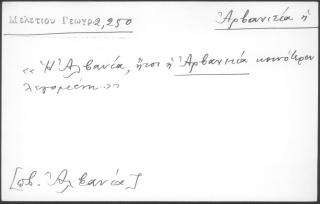 Μελετίου Γεωγρ 2, 250
Ἀρβανιτία ἡ
«Ἡ Ἀλβανία, ἤτοι ἡ Ἀρβανιτία κοινότερον
λεγομένη»
[πβ. Ἀλβανία]